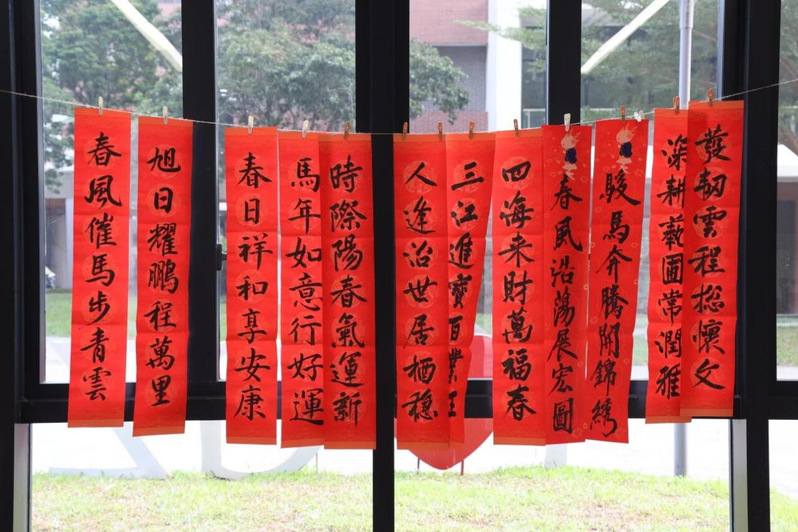 發韌雲程總懷文
深耕藝圃常潤雅
駿馬奔騰開錦繡
春風浩蕩展宏圖
四海來財萬福春
三江進寶百業旺
人逢治世居栖穩
時際陽春氣運新
馬年如意行好運
春日祥和享安康
旭日耀鵬程萬里
春風催馬步青雲